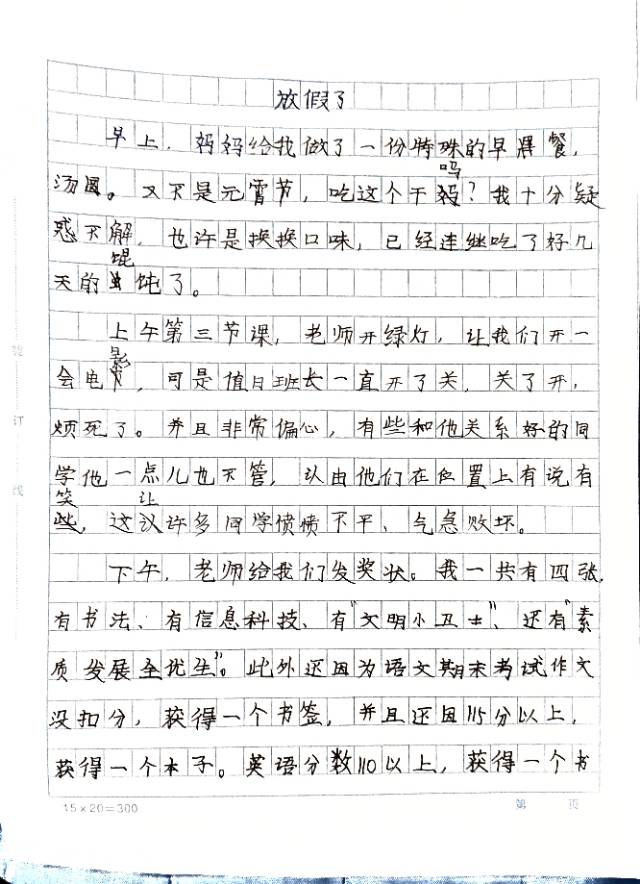 放假了
早上，妈妈给我做了一份特殊的早餐，
汤圆。又不是元霄节，吃这个干吗？我十分疑
惑不解，也许是换换口味，已经连继吃了好几
天的馄饨了。
上午第三节课，老师开绿灯，让我们开一
会电影，可是值日班长一直开了关，关了开，
烦死了。并且非常偏心，有些和他关系好的同
学他一点儿也不管，认由他们在位置上有说有
笑，这让许多同学愤愤不平、气急败坏。
下午，老师给我们发奖状。我一共有四张，
有书法、有信息科技、有"文明小卫士"、还有"素
质发展全优生"。此外还因为语文期末考试作文
没扣分，获得一个书签，并且还因115分以上，
获得一个本子。英语分数110以上，获得一个书
装
订
线
15×20=300
第 页